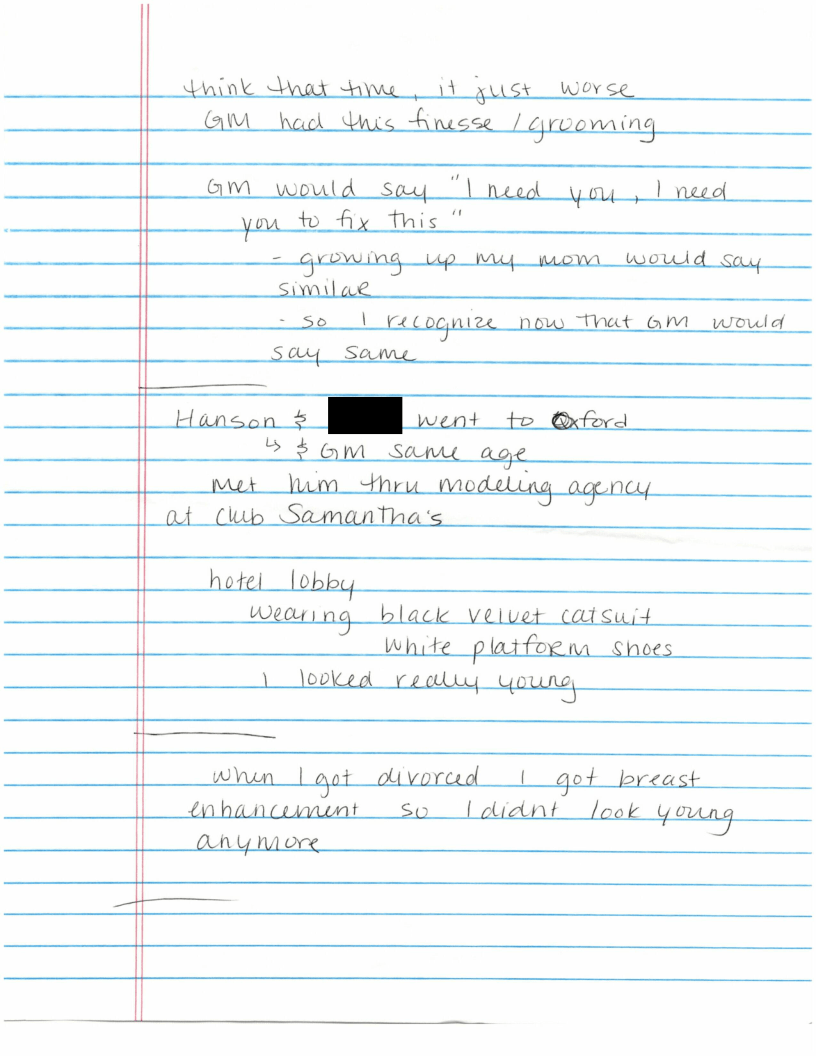 think that time, it just worse
GM had this finesse / grooming
GM would say "I need you, I need
you to fix this"
- growing up my mom would say
similar
- so I recognize now that GM would
say same
Hanson & went to Oxford
↳ & GM same age
met him thru modeling agency
at club Samantha's
hotel lobby
wearing black velvet catsuit
white platform shoes
I looked really young
when I got divorced I got breast
enhancement so I didnt look young
anymore